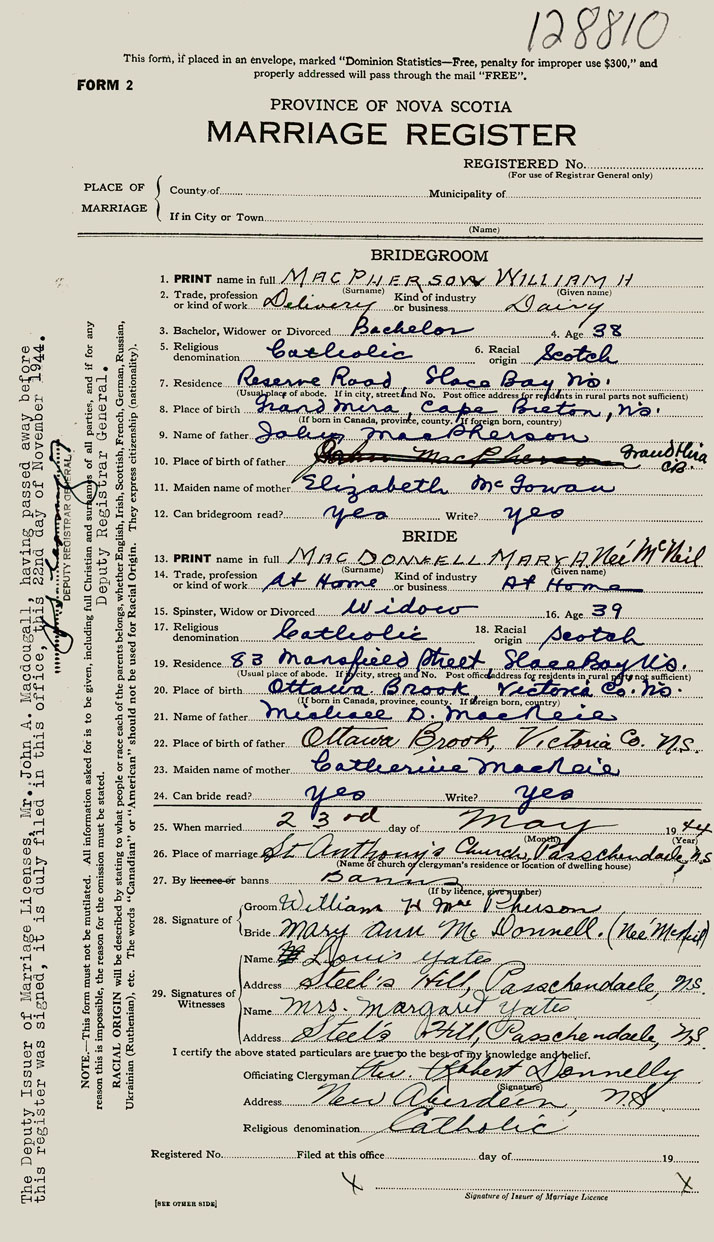 128810
This form, if placed in an envelope, marked "Dominion Statistics—Free, penalty for improper use $300," and
properly addressed will pass through the mail "FREE".
FORM 2
PROVINCE OF NOVA SCOTIA
MARRIAGE REGISTER
REGISTERED No.
(For use of Registrar General only)
PLACE OF MARRIAGE
County of Municipality of
If in City or Town
(Name)
BRIDEGROOM
1. PRINT name in full MACPHERSON WILLIAM H
(Surname) (Given name)
2. Trade, profession or kind of work Delivery Kind of industry or business Dairy
3. Bachelor, Widower or Divorced Bachelor 4. Age 38
5. Religious denomination Catholic 6. Racial origin Scotch
7. Residence Reserve Road, Glace Bay, N.S.
(Usual place of abode. If in city, street and No. Post office address for residents in rural parts not sufficient)
8. Place of birth Grand Mira, Cape Breton, N.S.
(If born in Canada, province, county. If foreign born, country)
9. Name of father John MacPherson
10. Place of birth of father John MacPherson Grand Mira C.B.
11. Maiden name of mother Elizabeth McGowan
12. Can bridegroom read? yes Write? yes
BRIDE
13. PRINT name in full MACDONNELL MARY A. Neé McNeil
(Surname) (Given name)
14. Trade, profession or kind of work At Home Kind of industry or business At Home
15. Spinster, Widow or Divorced Widow 16. Age 39
17. Religious denomination Catholic 18. Racial origin Scotch
19. Residence 83 Mansfield Street, Glace Bay N.S.
(Usual place of abode. If in city, street and No. Post office address for residents in rural parts not sufficient)
20. Place of birth Ottawa Brook, Victoria Co. N.S.
(If born in Canada, province, county. If foreign born, country)
21. Name of father Michael D. MacNeil
22. Place of birth of father Ottawa Brook, Victoria Co. N.S.
23. Maiden name of mother Catherine MacNeil
24. Can bride read? yes Write? yes
25. When married 23rd day of May 1944
(Month) (Year)
26. Place of marriage St Anthony's Church, Passchendaele, N.S
(Name of church or clergyman's residence or location of dwelling house)
27. By licence or banns Banns
(If by licence, give number)
28. Signature of
Groom William H MacPherson
Bride Mary Ann McDonnell. (Neé McNeil)
29. Signatures of Witnesses
Name Louis Yates
Address Steel's Hill, Passchendaele, N.S.
Name Mrs. Margaret Yates
Address Steel's Hill, Passchendaele, N.S.
I certify the above stated particulars are true to the best of my knowledge and belief.
Officiating Clergyman Rev. Robert Donnelly
(Signature)
Address New Aberdeen, N.S
Religious denomination Catholic
Registered No. Filed at this office day of 19
X X
Signature of Issuer of Marriage Licence
[SEE OTHER SIDE]
The Deputy Issuer of Marriage Licenses, Mr. John A. Macdougall, having passed away before
this register was signed, it is duly filed in this office, this 22nd day of November 1944.
DEPUTY REGISTRAR GENERAL
Deputy Registrar General.
NOTE.—This form must not be mutilated. All information asked for is to be given, including full Christian and surnames of all parties, and if for any
reason this is impossible, the reason for the omission must be stated.
RACIAL ORIGIN will be described by stating to what people or race each of the parents belongs, whether English, Irish, Scottish, French, German, Russian,
Ukrainian (Ruthenian), etc. The words "Canadian" or "American" should not be used for Racial Origin. They express citizenship (nationality).